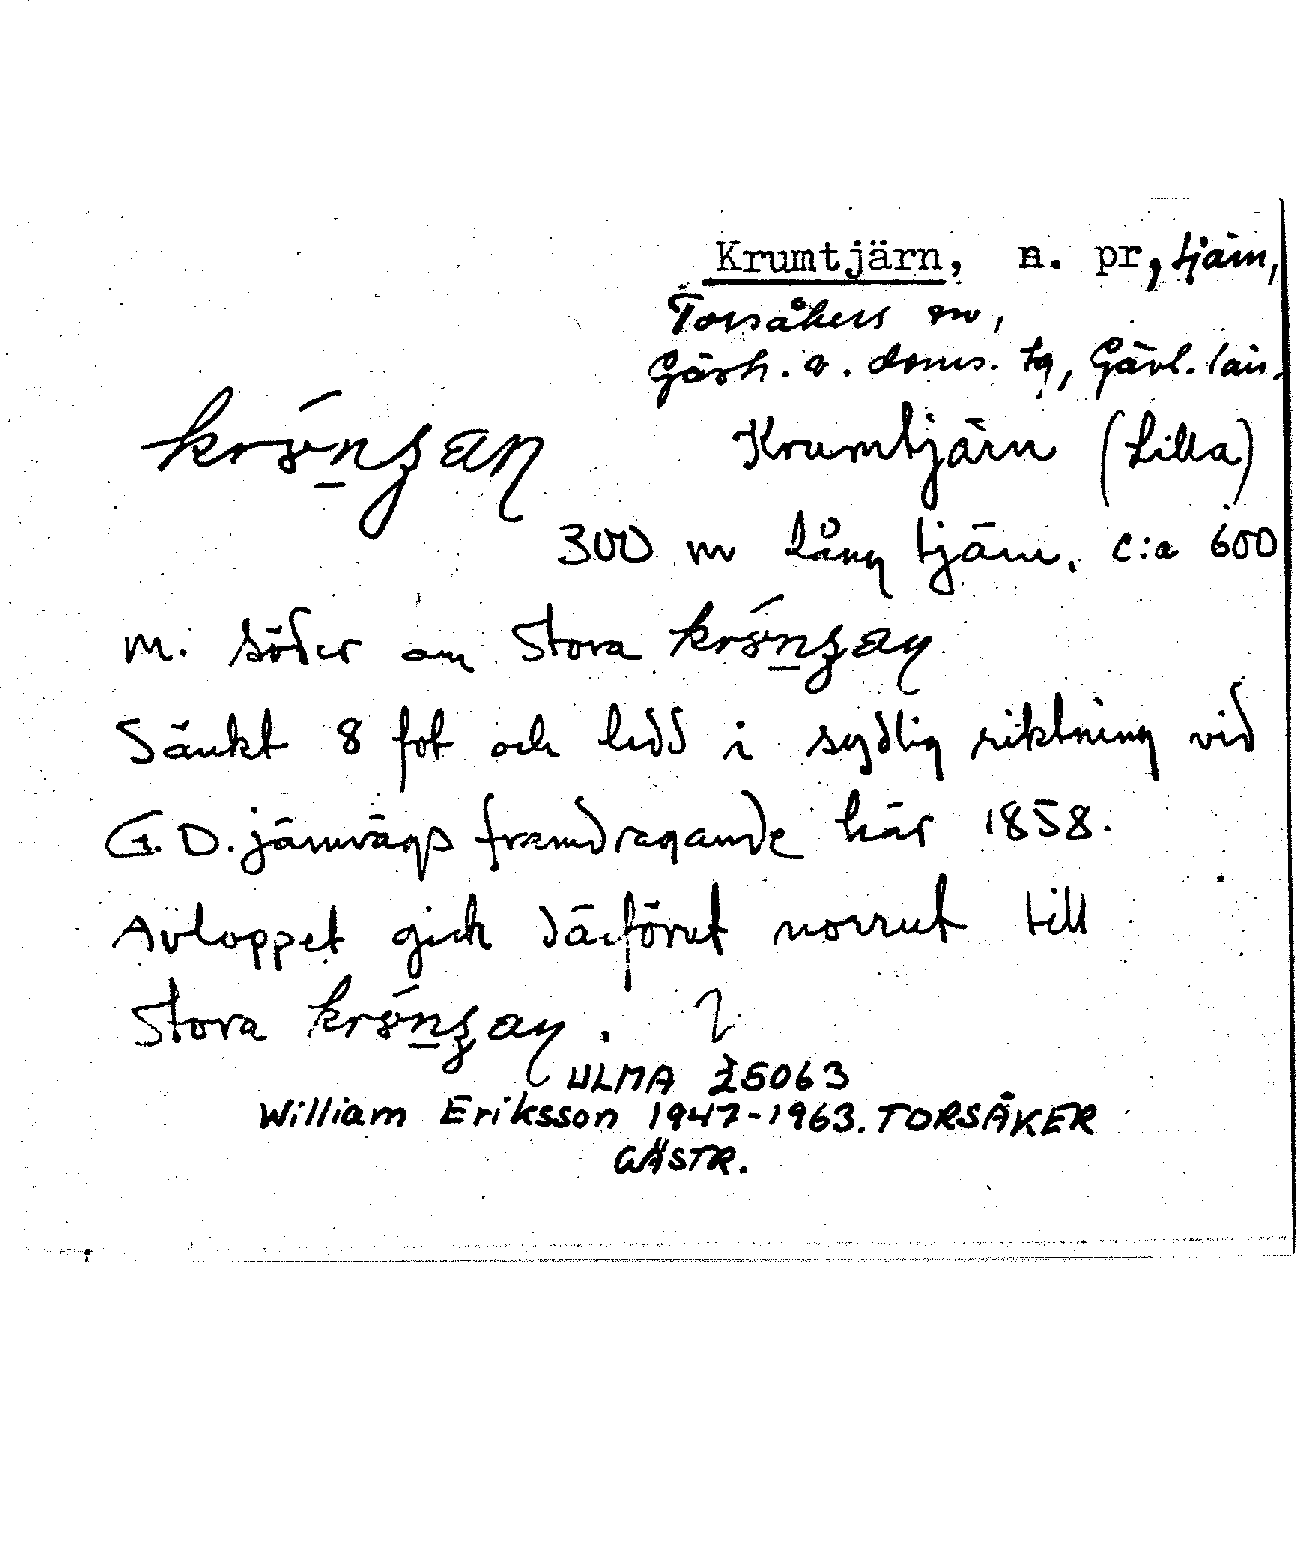 Krumtjärn, n. pr, tjärn,
Torsåkers sn,
Gästr. ö. doms. tg, Gävl. län.
Krumtjärn (Lilla)
300 m lång tjärn. c:a 600
m. söder om Stora
Sänkt 8 fot och ledd i sydlig riktning vid
G. D. järnvägs framdragande här 1858.
Avloppet gick därförut norrut till
Stora
ULMA 25063
William Eriksson 1947-1963. TORSÅKER
GÄSTR.